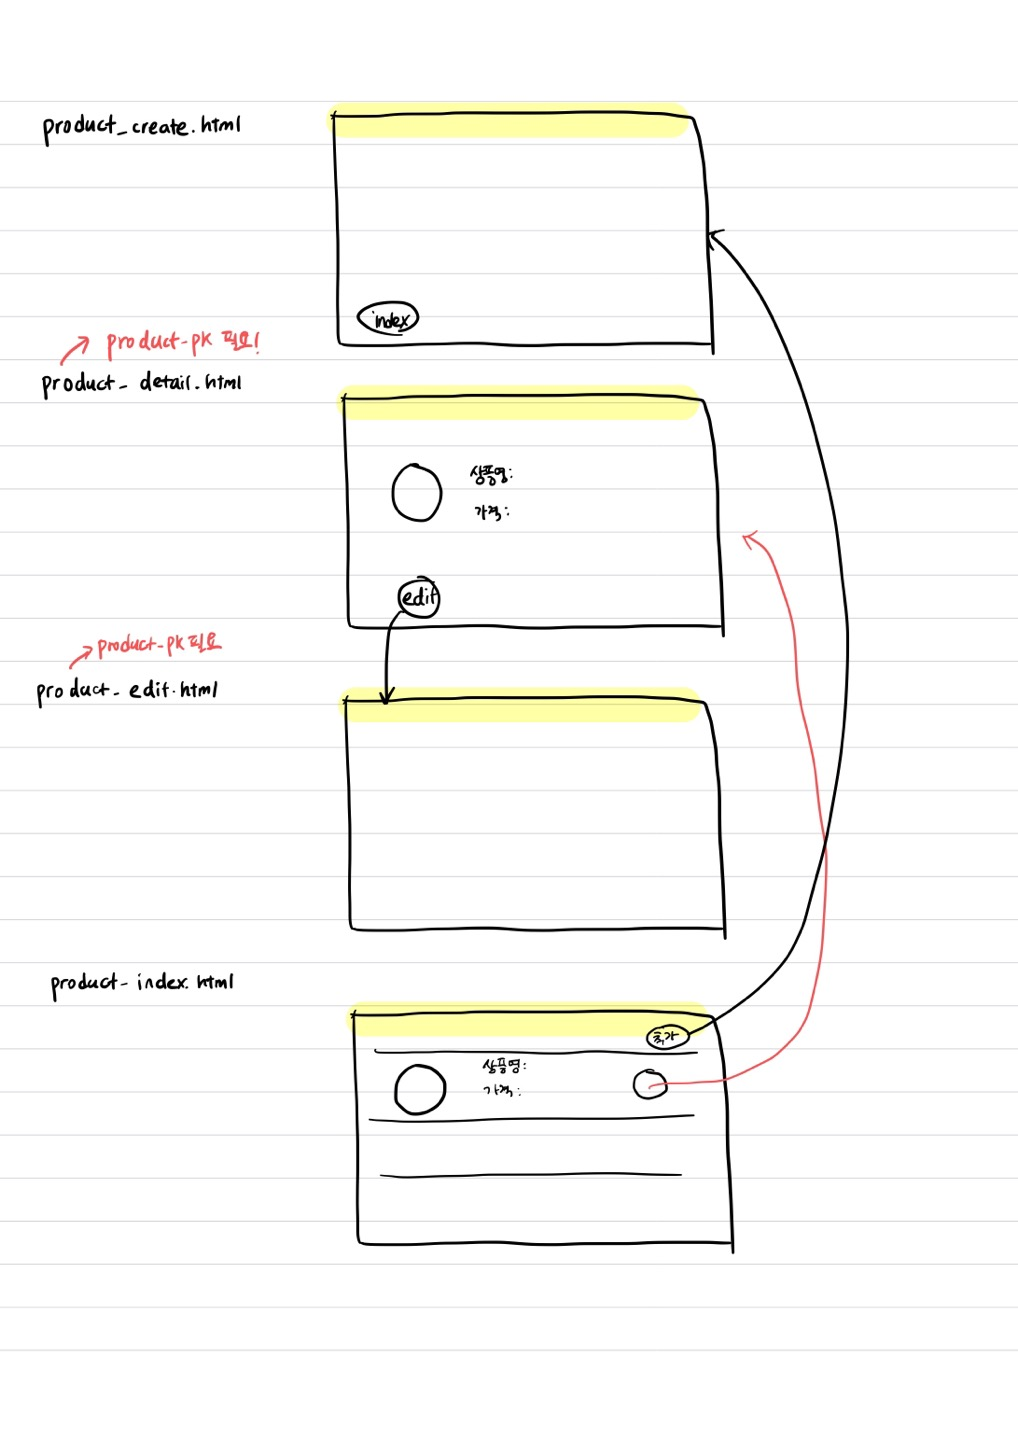 product_create.html
index
product-pk 필요!
product_ detail.html
상품명:
가격:
edit
product-pk 필요
product_ edit.html
product- index.html
추가
상품명:
가격: